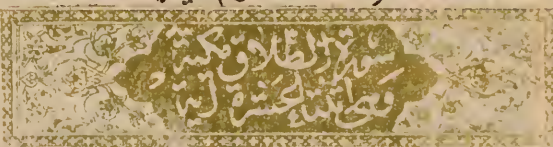 سورة الطلاق مكية
وهى اثنتا عشرة اية